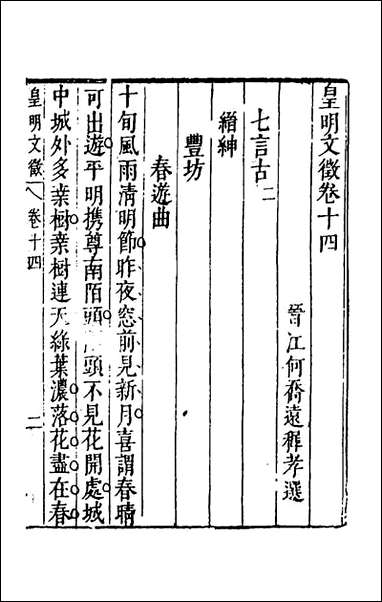 皇明文徵卷十四
晉江何喬遠穉孝選
七言古二
縉紳
豐坊
春遊曲
十旬風雨清明節昨夜窓前見新月喜謂春晴
可出遊平明携尊南陌頭頭不見花開處城
中城外多桒樹桒樹連天綠葉濃落花盡在春
皇明文徵 卷十四 二